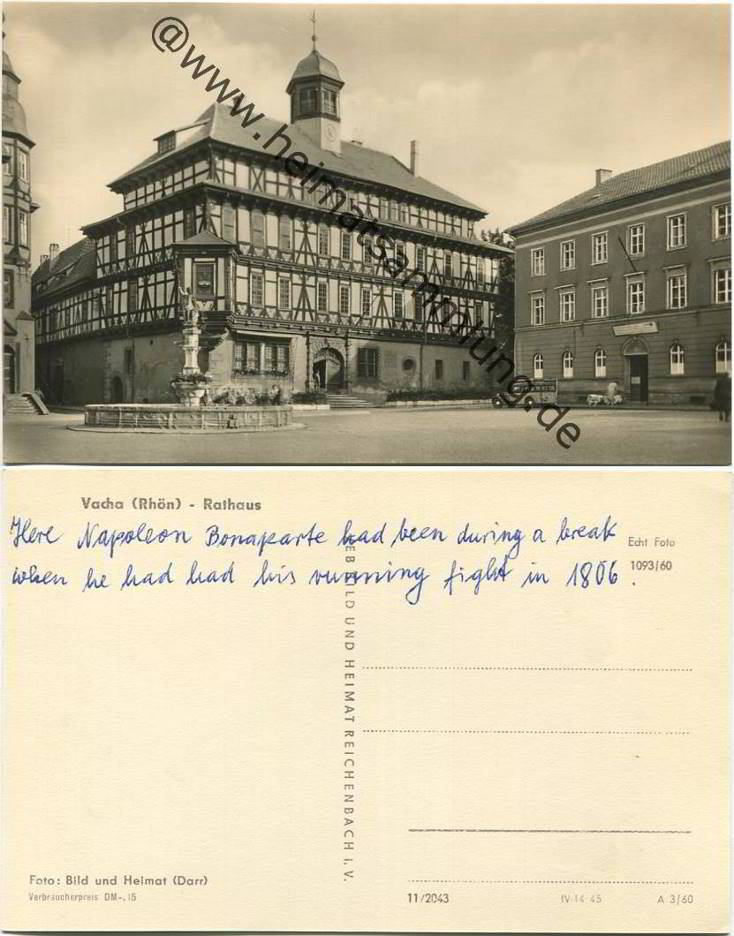 @www.heimatsammlung.de
Vacha (Rhön) - Rathaus
Here Napoleon Bonaparte had been during a break
when he had had his running fight in 1806.
Echt Foto
1093/60
BILD UND HEIMAT REICHENBACH I. V.
Foto: Bild und Heimat (Darr)
Verbraucherpreis DM -,15
11/2043
IV-14-45
A 3/60